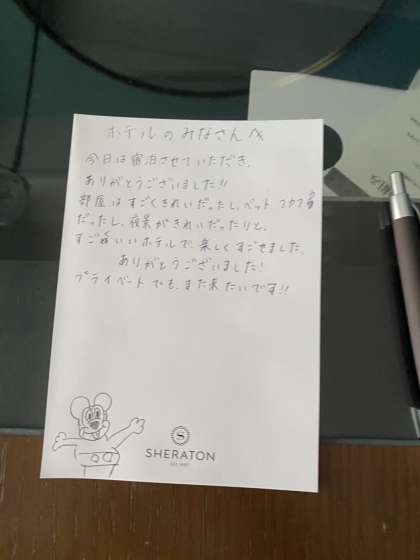 ホテルのみなさんへ
今日は宿泊させていただき、
ありがとうございました!!
部屋はすごくきれいだったし、ベット フカフカ
だったし、夜景がきれいだったりと、
すごくいいホテルで、楽しくすごせました。
ありがとうございました!
プライベートでも、また来たいです!!
S
SHERATON